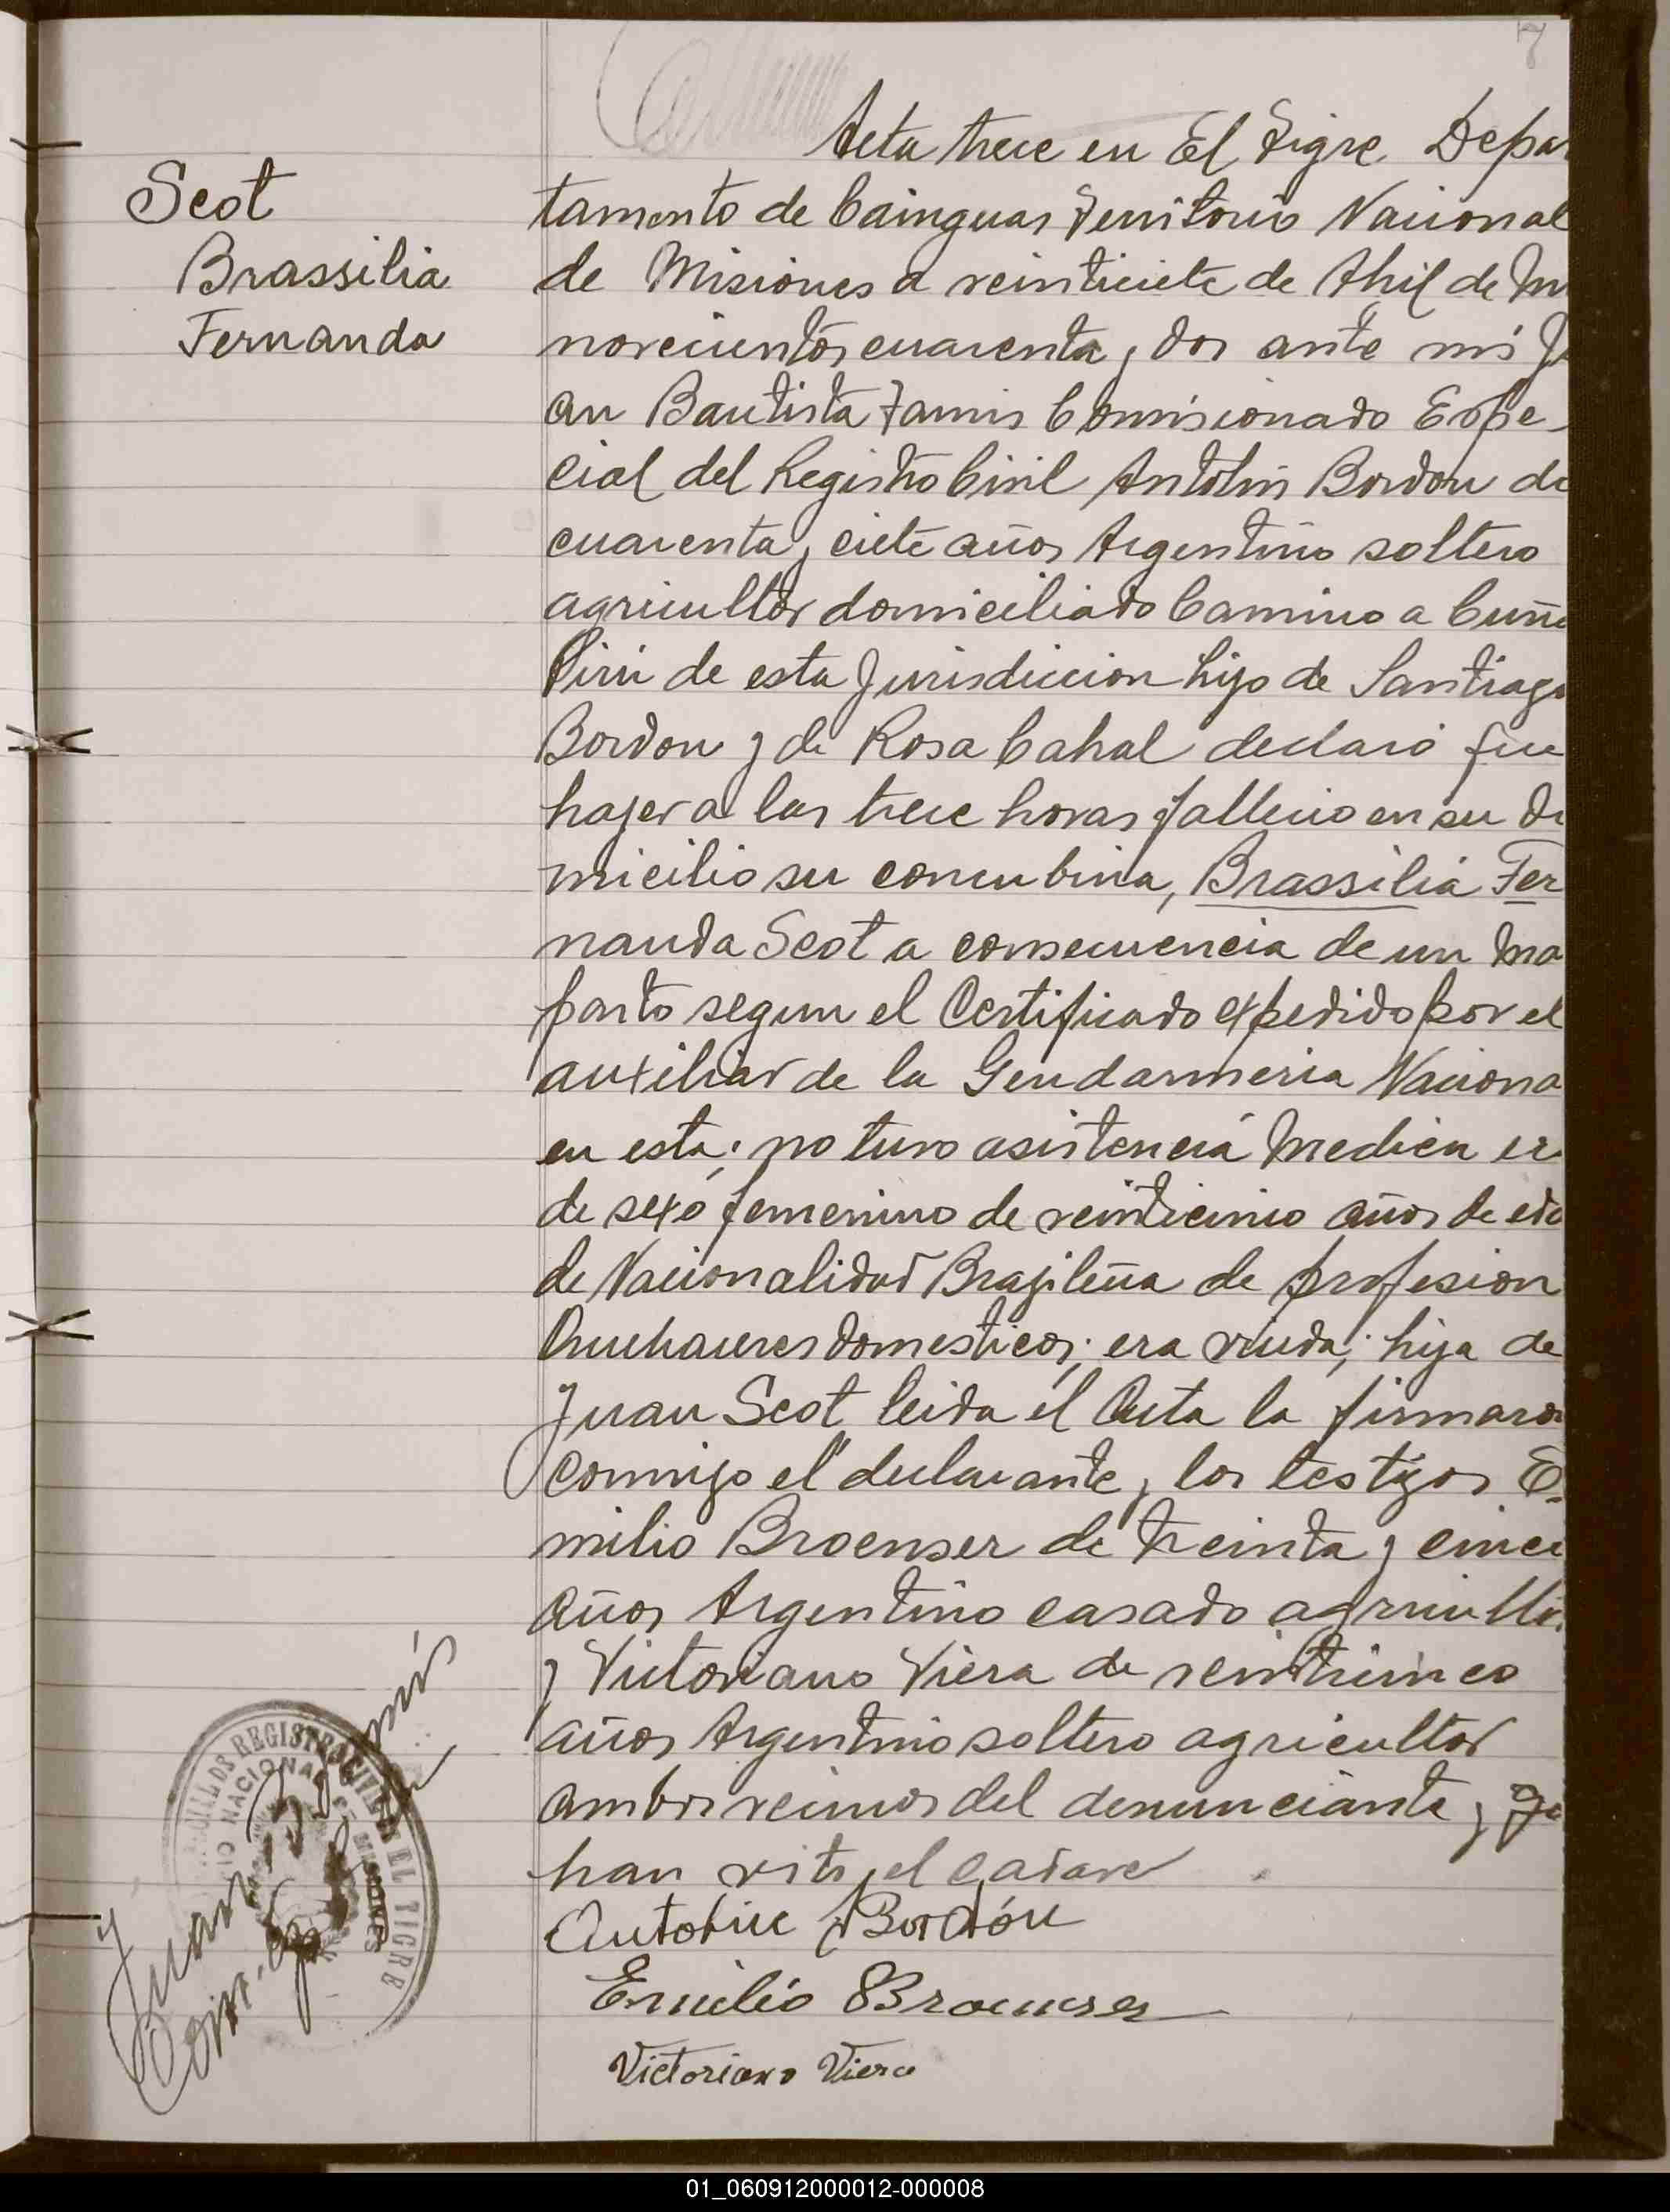 7
Acta trece en El Tigre Depar
Scot
tamento de Cainguas Territorio Nacional
Brassilia
de Misiones a veinticiete de Abril de M
Fernanda
novecientos cuarenta y dos ante mi Ju
an Bautista Comisionado Espe-
cial del Registro Civil Antolin Bordon de
cuarenta y ciete años Argentino soltero
agricultor domiciliado Camino a Cuña
Piru de esta Jurisdiccion hijo de Santiago
Bordon y de Rosa Cabral declaró que
hayer a las trece horas fallecio en su do
micilio su concubina, Brassilia Fer
nanda Scot a consecuencia de un ma
parto segun el Certificado expedido por el
auxiliar de la Gendarmeria Naciona
en esta; no tuvo asistencia Medica er
de sexo femenino de veinticinco años de eda
de Nacionalidad Brazileña de profesion
Quehaceres domesticos; era viuda; hija de
Juan Scot leida el Acta la firmaron
conmigo el declarante y los testigos E-
milio Broenser de treinta y cinco
años Argentino casado agricultor
y Victoriano Viera de veinticinco
años Argentino soltero agricultor
ambos vecinos del denunciante y que
han visto el cadaver
Antolin Bordón
Emilio Broenser
Victoriano Viera
REGISTRO CIVIL EL TIGRE
NACIONAL DE MISIONES
Juan B.
01_060912000012-000008